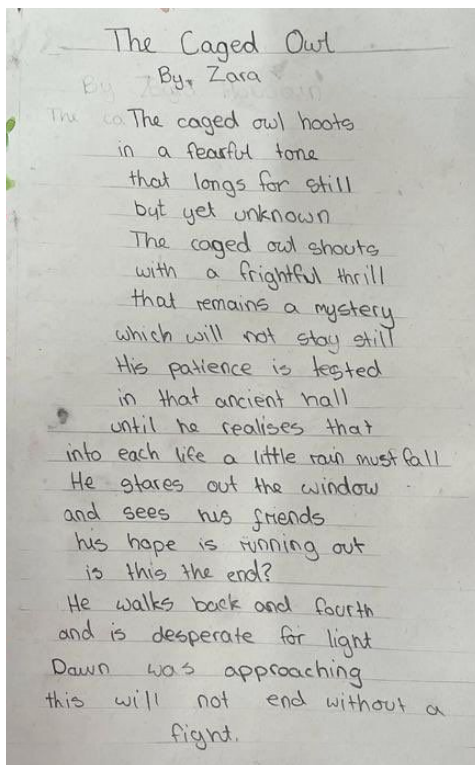 The Caged Owl
By, Zara
The caged owl hoots
in a fearful tone
that longs for still
but yet unknown
The caged owl shouts
with a frightful thrill
that remains a mystery
which will not stay still
His patience is tested
in that ancient hall
until he realises that
into each life a little rain must fall
He stares out the window
and sees his friends
his hope is running out
is this the end?
He walks back and fourth
and is desperate for light
Dawn was approaching
this will not end without a
fight.